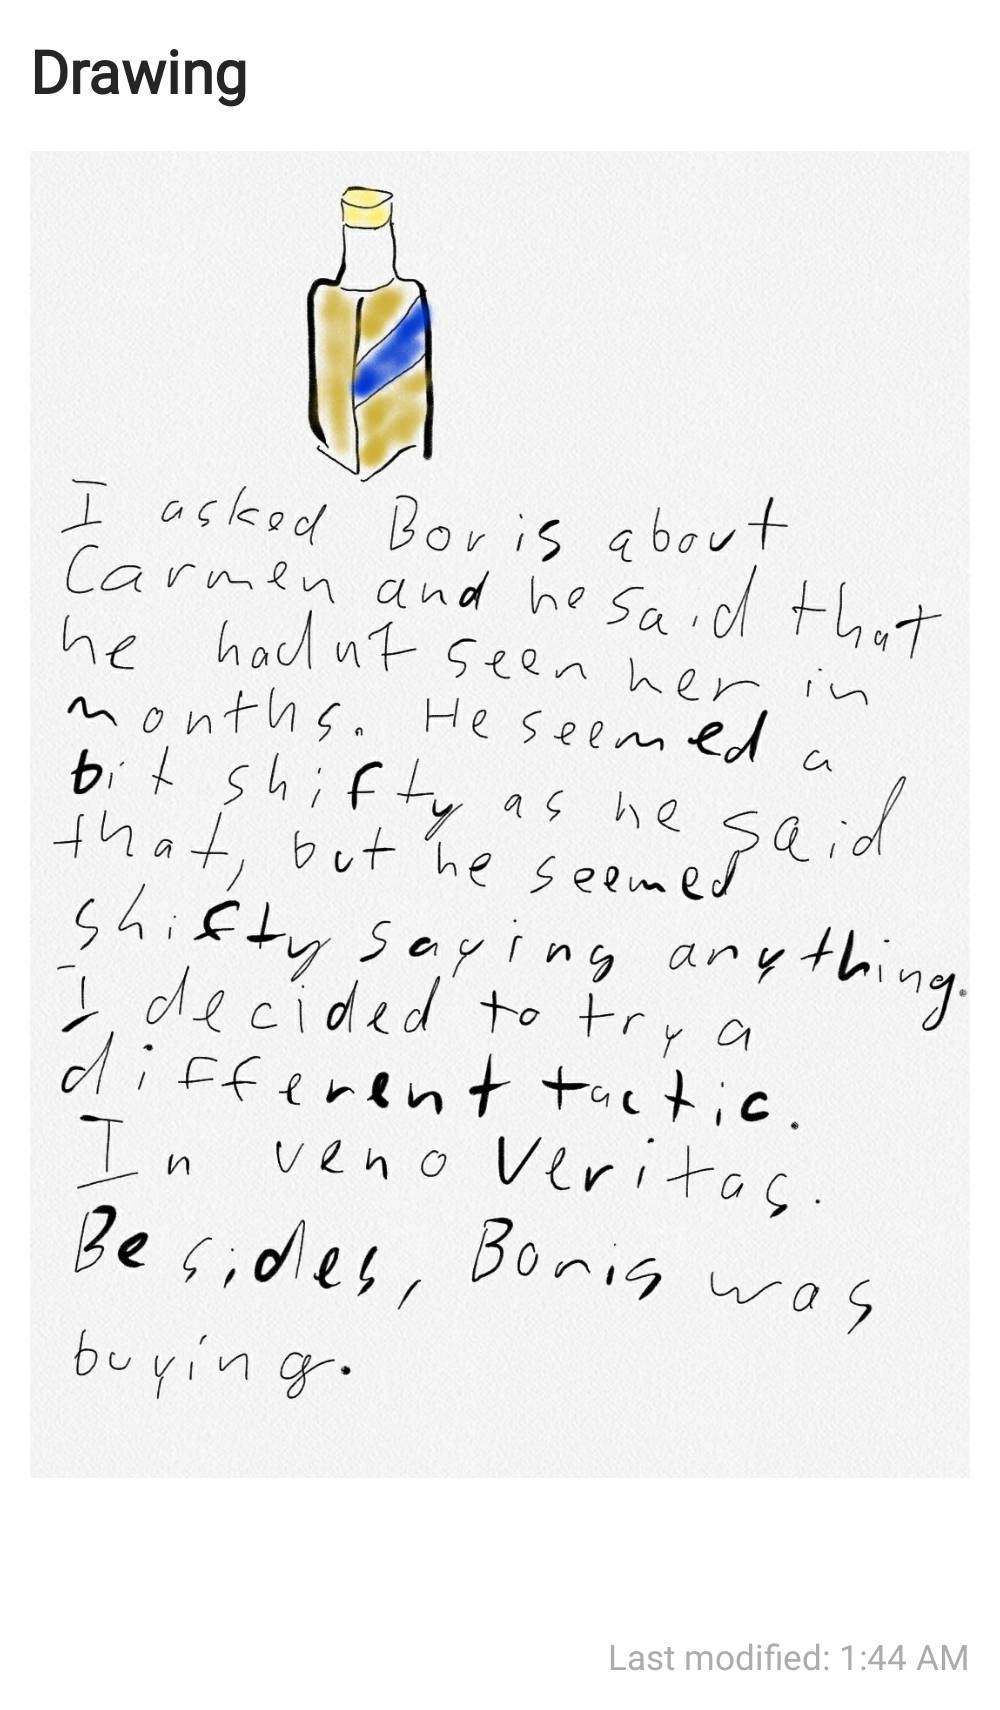 Drawing
I asked Boris about
Carmen and he said that
he hadn't seen her in
months. He seemed a
bit shifty as he said
that, but he seemed
shifty saying anything.
I decided to try a
different tactic.
In veno veritas.
Besides, Boris was
buying.
Last modified: 1:44 AM